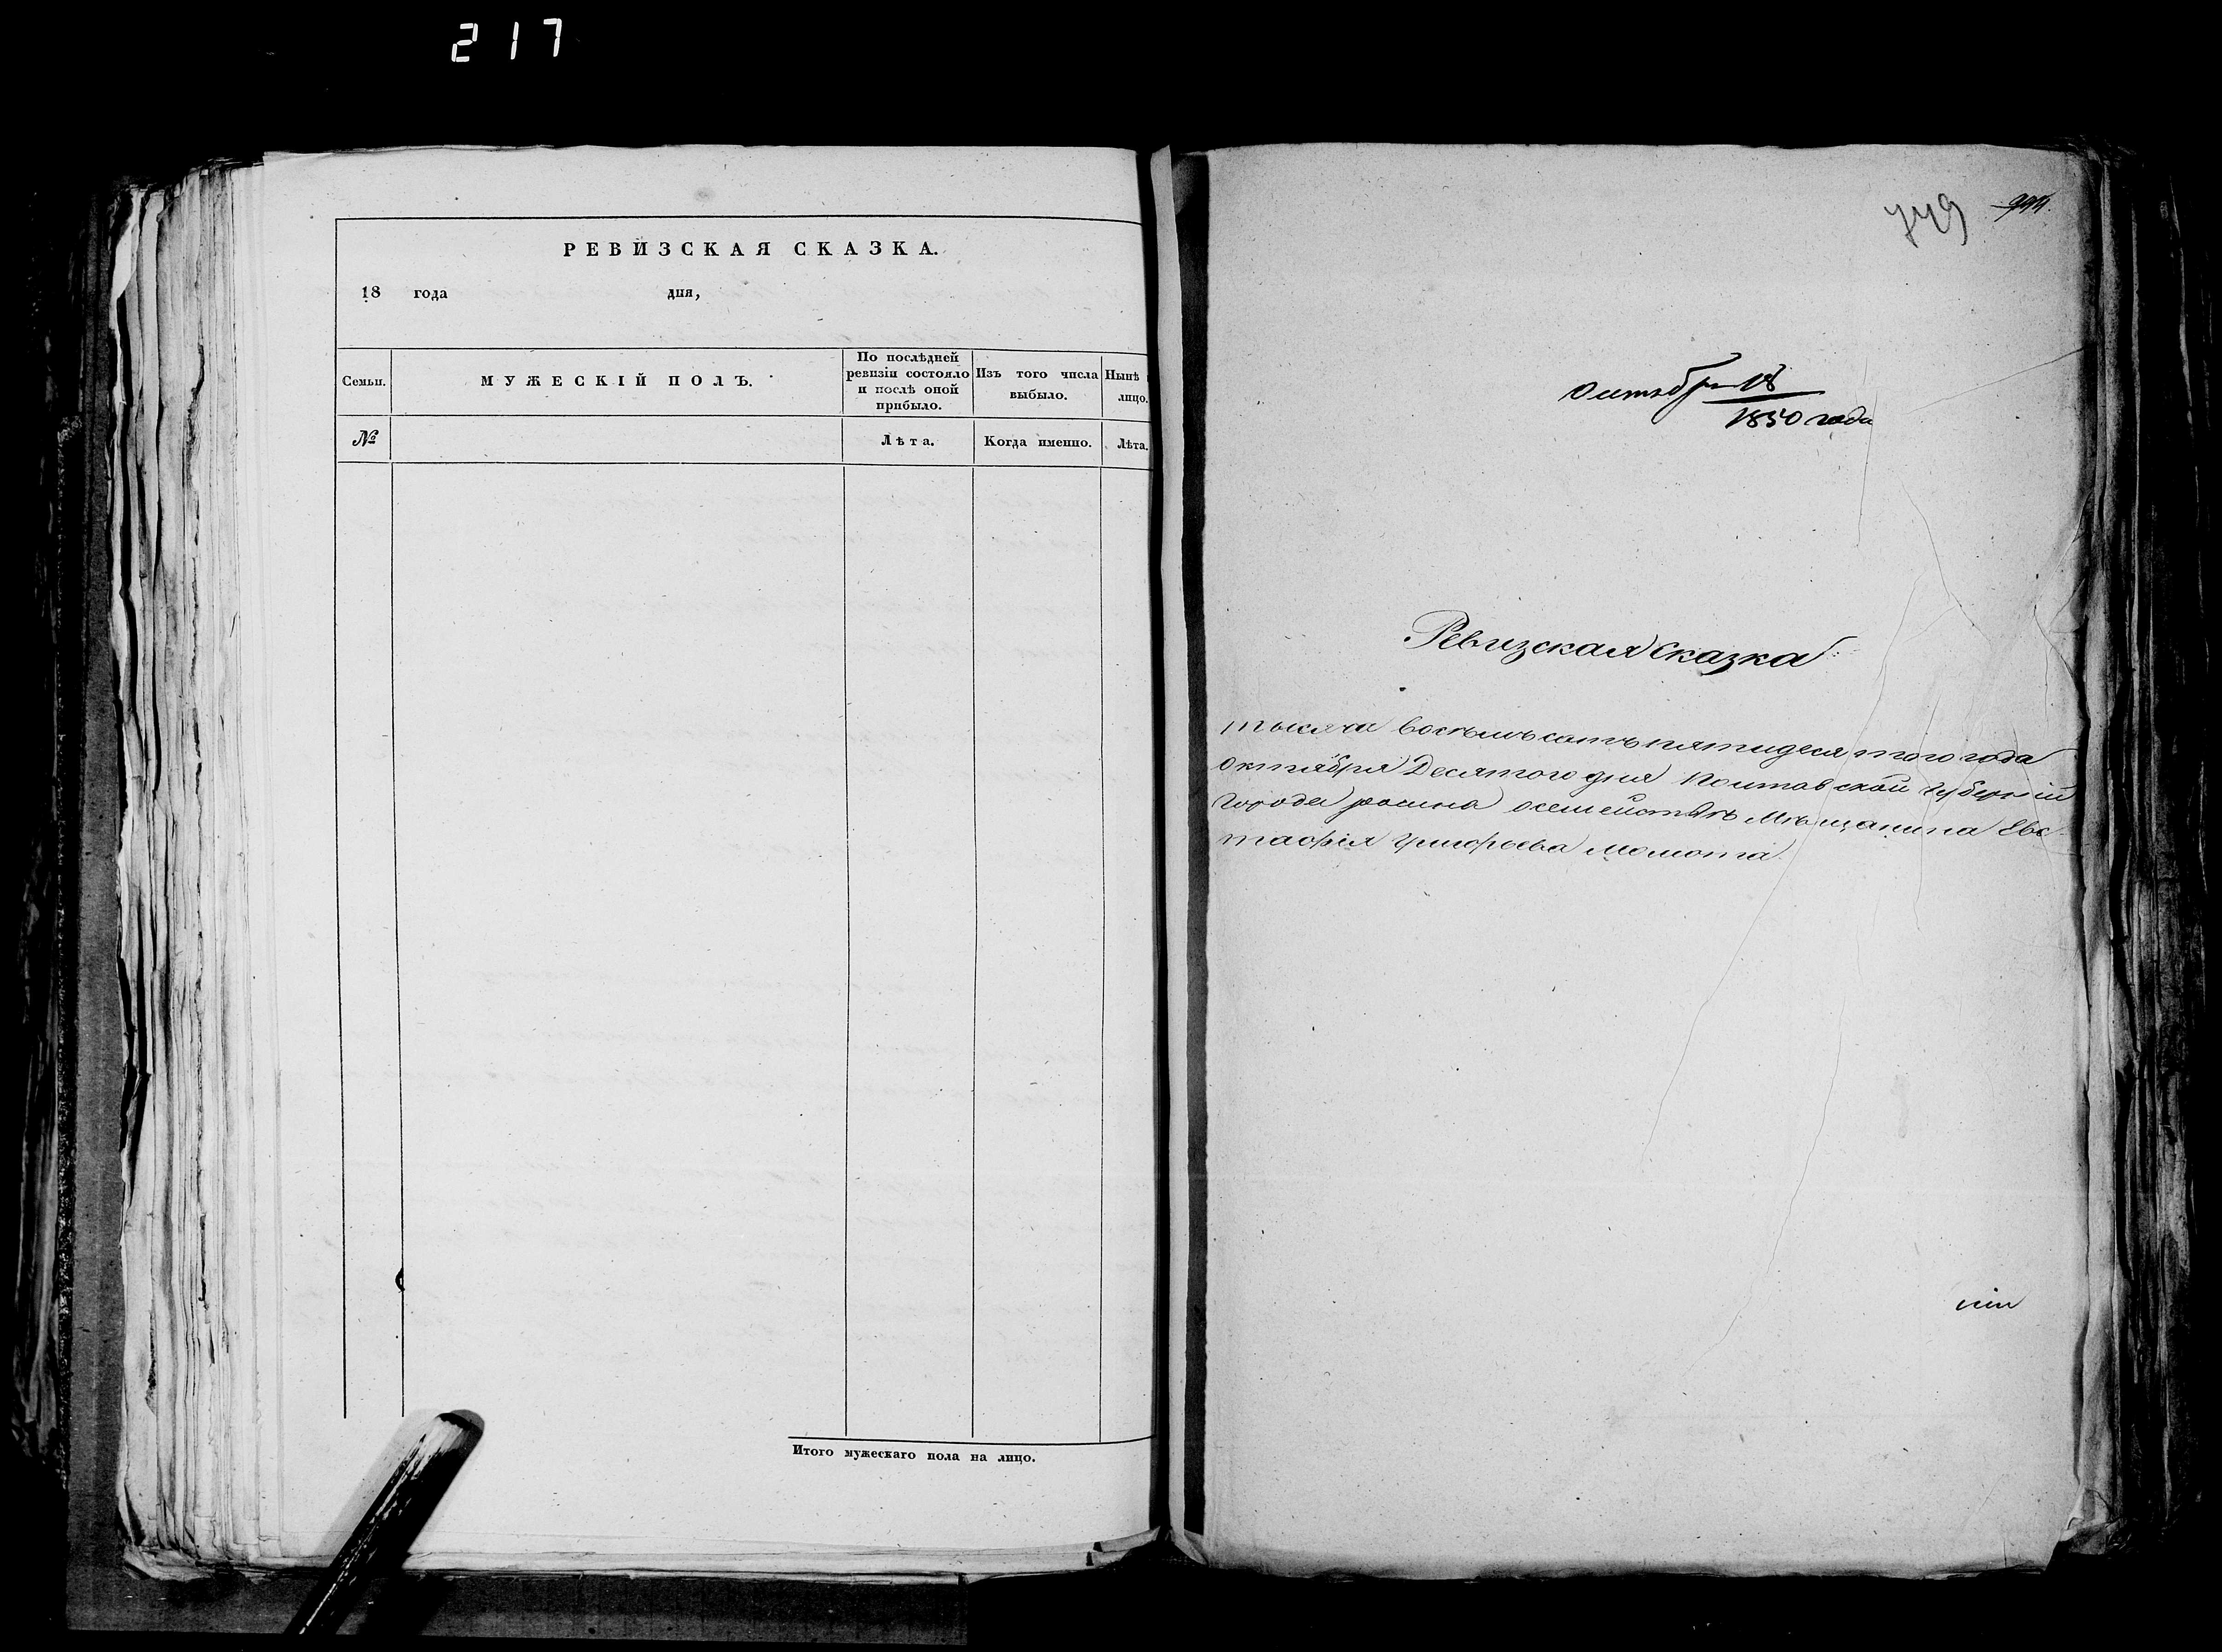 217
РЕВИЗСКАЯ СКАЗКА.
18 года дня,
Семьи.
МУЖЕСКІЙ ПОЛЪ.
По послѣдней
ревизіи состояло
и послѣ оной
прибыло.
Изъ того числа
выбыло.
Нынѣ
лицо.
№
Лѣта.
Когда именно.
Лѣта.
Итого мужескаго пола на лицо.
749
Октября 18
1850 года
Ревизская Сказка
тысяча восемьсотъ пятидесятого года
Октября Десятого дня Полтавской Губерніи
города семействѣ Мѣщанина Евс-
тафія Григорьева Момота